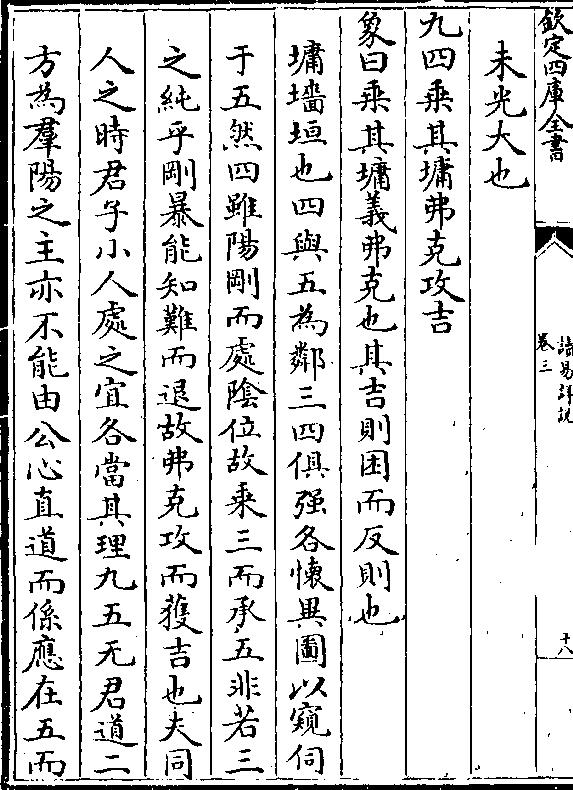 欽定四庫全書
讀易詳說
卷三
十八
未光大也
九四乗其墉弗克攻吉
象曰乗其墉義弗克也其吉則困而反則也
墉墻垣也四與五為鄰三四俱强各懐異圖以窺伺
于五然四雖陽剛而處陰位故乗三而承五非若三
之純乎剛暴能知難而退故弗克攻而獲吉也夫同
人之時君子小人處之宜各當其理九五无君道二
方為羣陽之主亦不能由公心直道而係應在五而